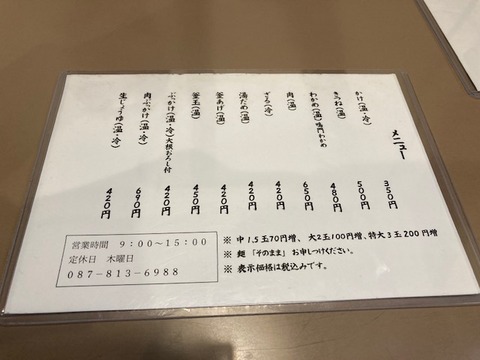 メニュー
かけ(温・冷) 350円
きつね(温) 500円
わかめ(温)鳴門わかめ 480円
肉(温) 650円
ざる(冷) 420円
湯だめ(温) 420円
釜あげ(温) 420円
釜玉(温) 450円
ぶっかけ(温・冷)大根おろし付 420円
肉ぶっかけ(温・冷) 690円
生じょうゆ(温・冷) 420円
営業時間 9:00~15:00
定休日 木曜日
087-813-6988
※ 中1.5玉70円増、大2玉100円増、特大3玉200円増
※ 麺「そのまま」お申しつけください。
※ 表示価格は税込みです。